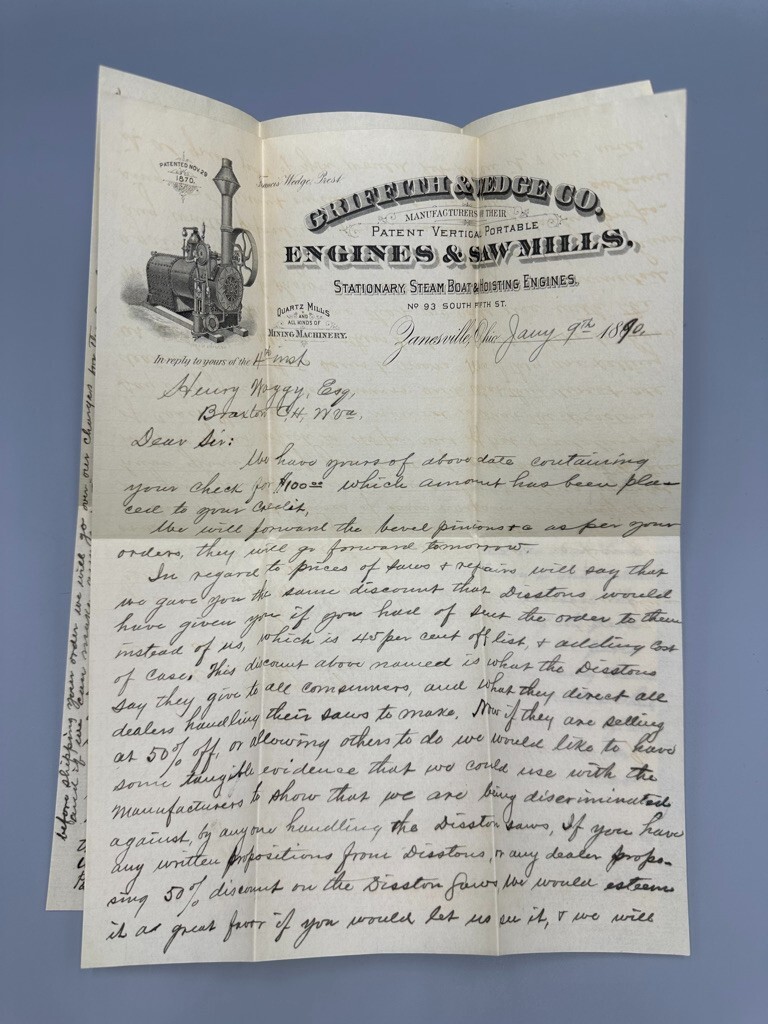 PATENTED NOV. 29
1870.
Francis Wedge, Prest.
GRIFFITH & WEDGE CO.
MANUFACTURERS OF THEIR
PATENT VERTICAL PORTABLE
ENGINES & SAW MILLS.
STATIONARY, STEAM BOAT & HOISTING ENGINES,
QUARTZ MILLS
AND
ALL KINDS OF
MINING MACHINERY.
No 93 SOUTH FIFTH ST.
Zanesville, Ohio Jany 9th 1890
In reply to yours of the 4th inst
Henry Waggy, Esq,
Braxton C,H, W Va,
Dear Sir:
We have yours of above date containing
your check for $100.00 which amount has been pla-
ced to your credit,
We will forward the bevel pinions &c as per your
orders, they will go forward tomorrow.
In regard to prices of saws & repairs, will say that
we gave you the same discount that Disstons would
have given you if you had of sent the order to them
instead of us, which is 45 per cent off list, & adding cost
of case. This discount above named is what the Disstons
say they give to all consumers, and what they direct all
dealers handling their saws to make. Now if they are selling
at 50% off, or allowing others to do we would like to have
some tangible evidence that we could use with the
manufacturers to show that we are being discriminated
against, by anyone handling the Disston saws, If you have
any written propositions from Disstons, or any dealer propo-
sing 50% discount on the Disston Saws we would esteem
it as great favor if you would let us see it, & we will
before shipping your order we will go over our charges
and if we can make